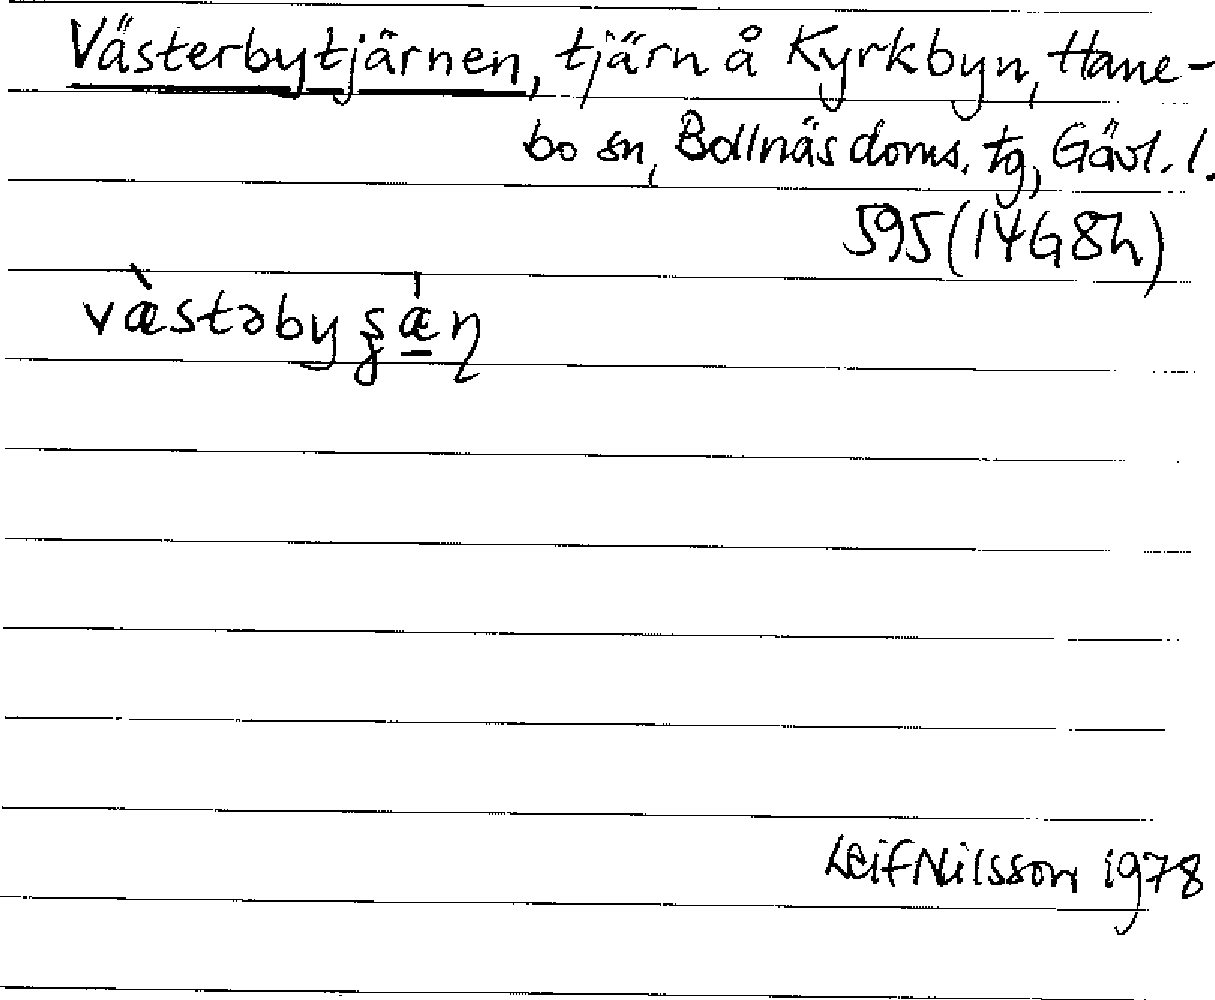 Västerbytjärnen, tjärn å Kyrkbyn, Hane-
bo sn, Bollnäs doms. tg, Gävl. l.
595 (14G8h)
Leif Nilsson 1978